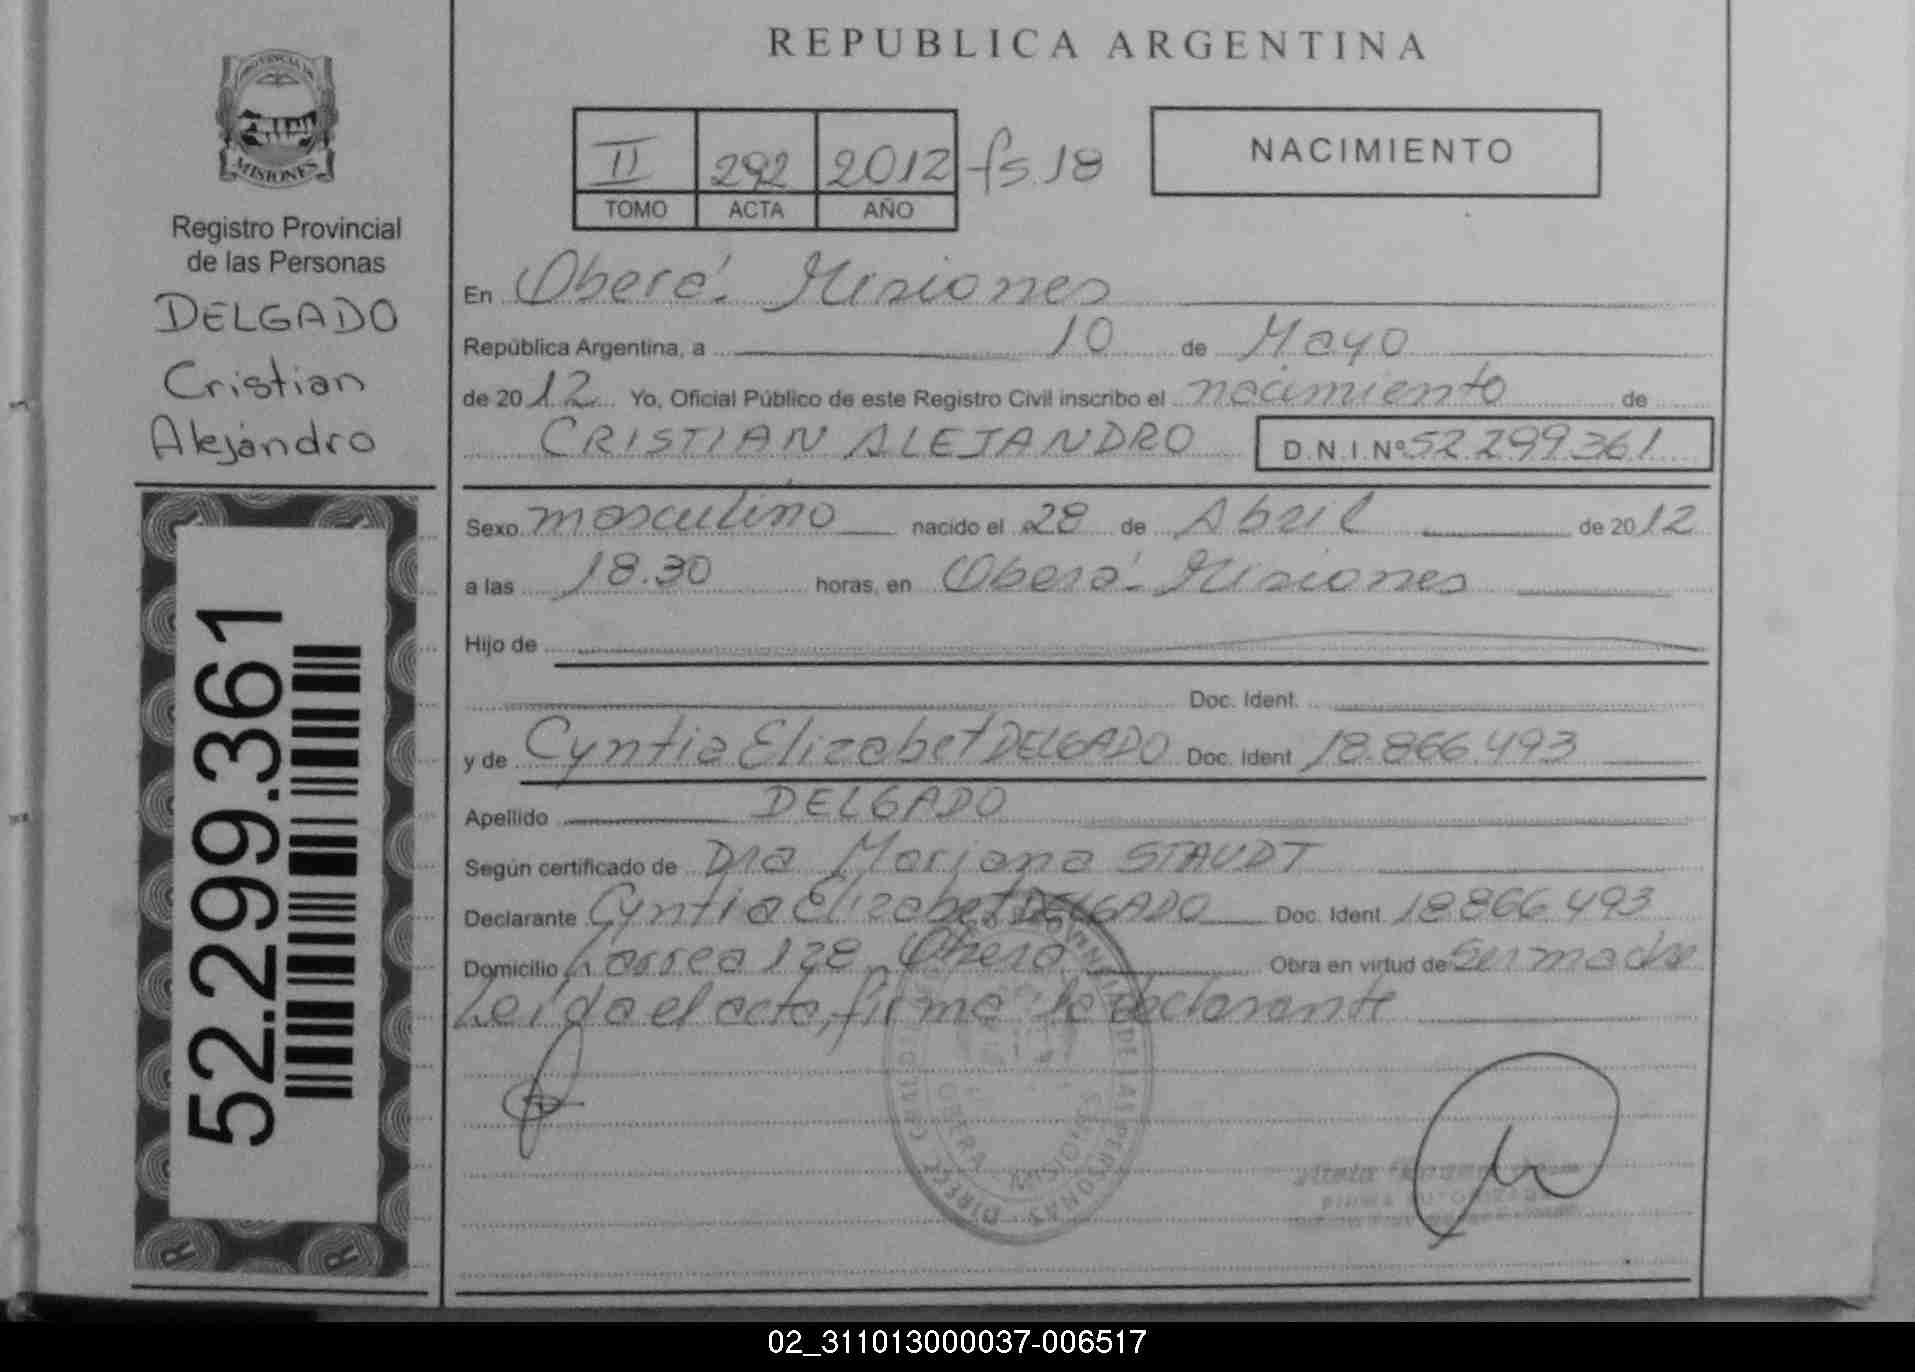 REPUBLICA ARGENTINA
PROVINCIA DE
MISIONES
II 292 2012 fs.18
TOMO ACTA AÑO
NACIMIENTO
Registro Provincial
de las Personas
DELGADO
Cristian
Alejandro
52.299.361
En Oberá. Misiones
República Argentina, a 10 de Mayo
de 2012 Yo, Oficial Público de este Registro Civil inscribo el nacimiento de
CRISTIAN ALEJANDRO D.N.I.Nº 52.299.361
Sexo masculino nacido el 28 de Abril de 2012
a las 18.30 horas, en Oberá - Misiones
Hijo de
Doc. Ident.
y de Cyntia Elizabet DELGADO Doc. Ident 18.866.493
Apellido DELGADO
Según certificado de Dra Mariana STAUDT
Declarante Cyntia Elizabet DELGADO Doc. Ident. 18866.493
Domicilio Larrea 128 Oberá Obra en virtud de Ser madre
Leída el acta, firma la declarante
DE LAS PERSONAS
OBERA MISIONES
R R
02_311013000037-006517